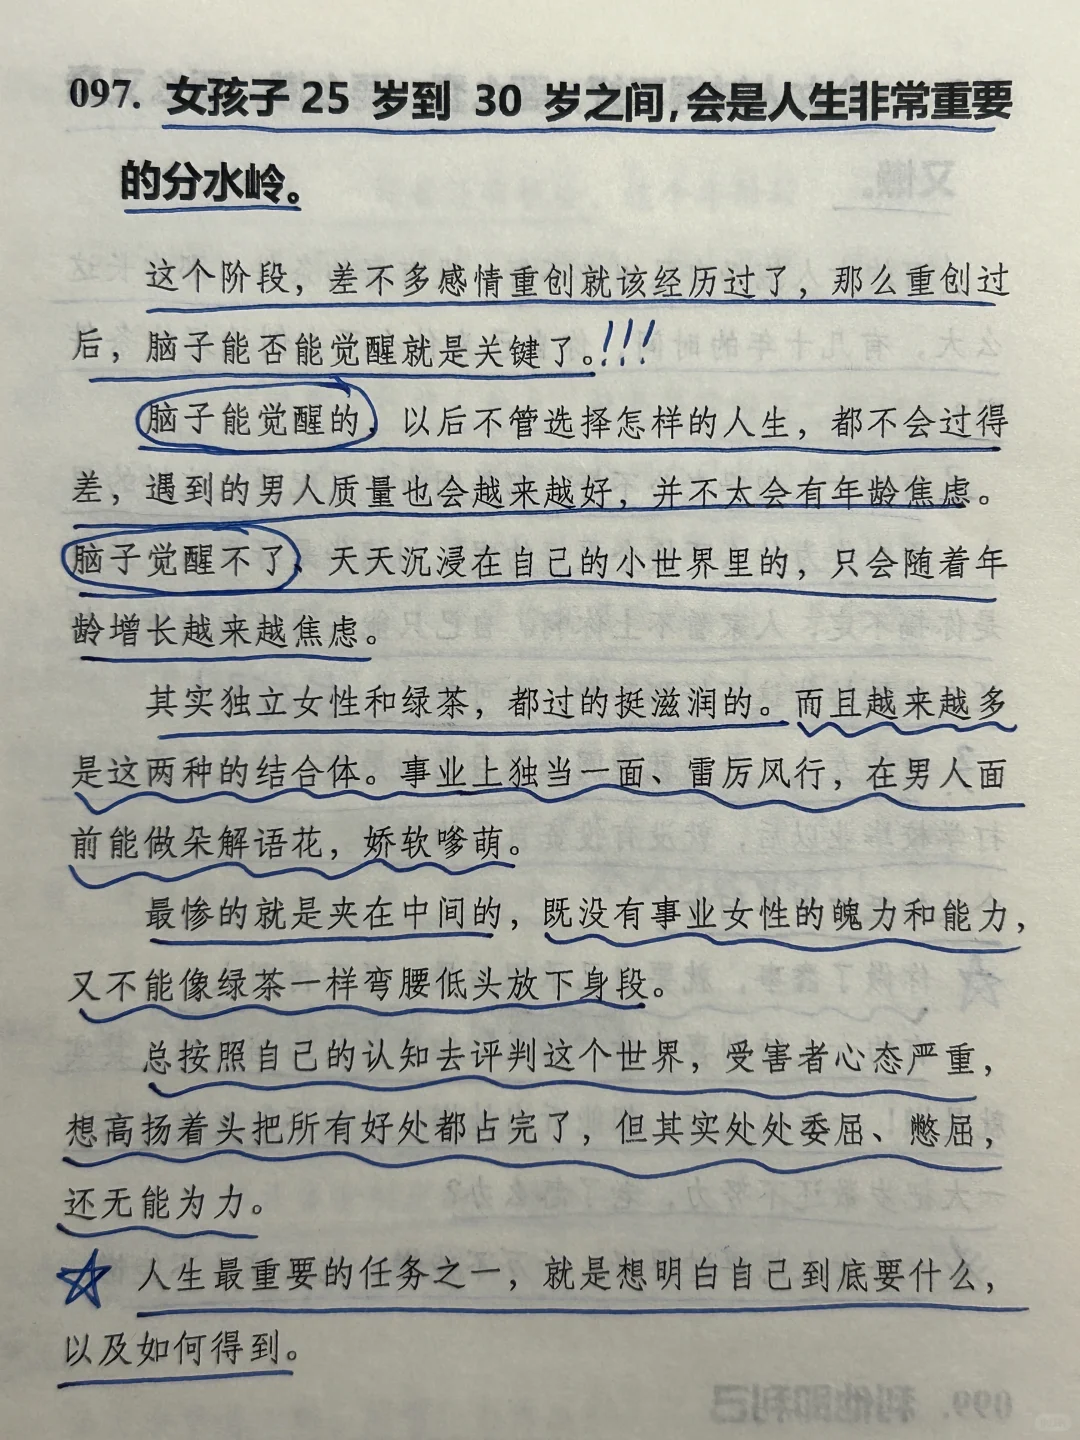 097. 女孩子 25 岁到 30 岁之间,会是人生非常重要
的分水岭。
这个阶段，差不多感情重创就该经历过了，那么重创过
后，脑子能否能觉醒就是关键了。!!!
脑子能觉醒的，以后不管选择怎样的人生，都不会过得
差，遇到的男人质量也会越来越好，并不太会有年龄焦虑。
脑子觉醒不了、天天沉浸在自己的小世界里的，只会随着年
龄增长越来越焦虑。
其实独立女性和绿茶，都过的挺滋润的。而且越来越多
是这两种的结合体。事业上独当一面、雷厉风行，在男人面
前能做朵解语花，娇软嗲萌。
最惨的就是夹在中间的，既没有事业女性的魄力和能力，
又不能像绿茶一样弯腰低头放下身段。
总按照自己的认知去评判这个世界，受害者心态严重，
想高扬着头把所有好处都占完了，但其实处处委屈、憋屈，
还无能为力。
人生最重要的任务之一，就是想明白自己到底要什么，
以及如何得到。
099. 利他即利己